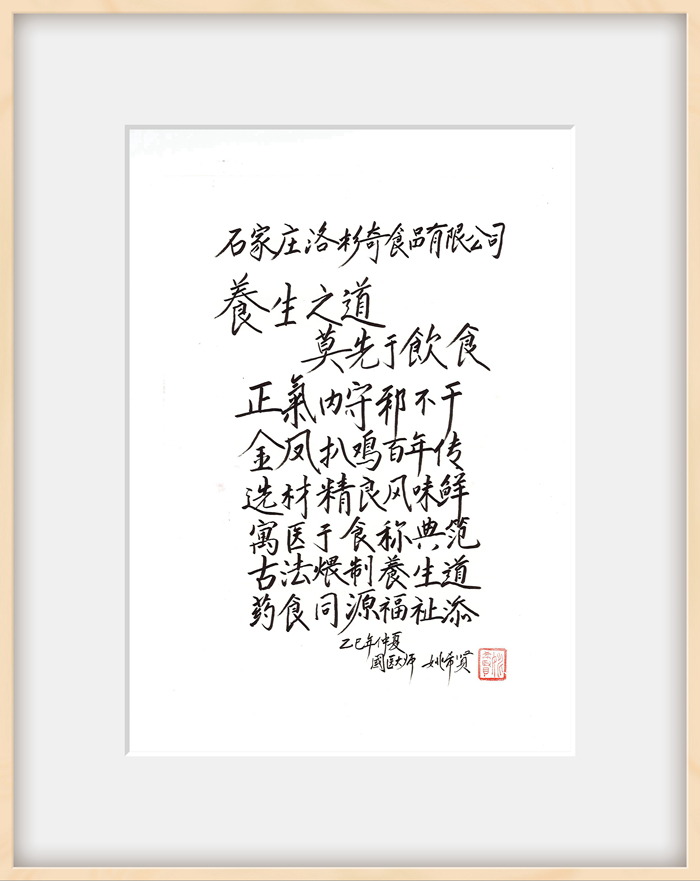 石家庄洛杉奇食品有限公司
養生之道
莫先于飲食
正氣内守邪不干
金凤扒鸡百年传
选材精良风味鲜
寓医于食称典范
古法煨制養生道
药食同源福祉添
乙巳年仲夏
國医大师 姚希贤